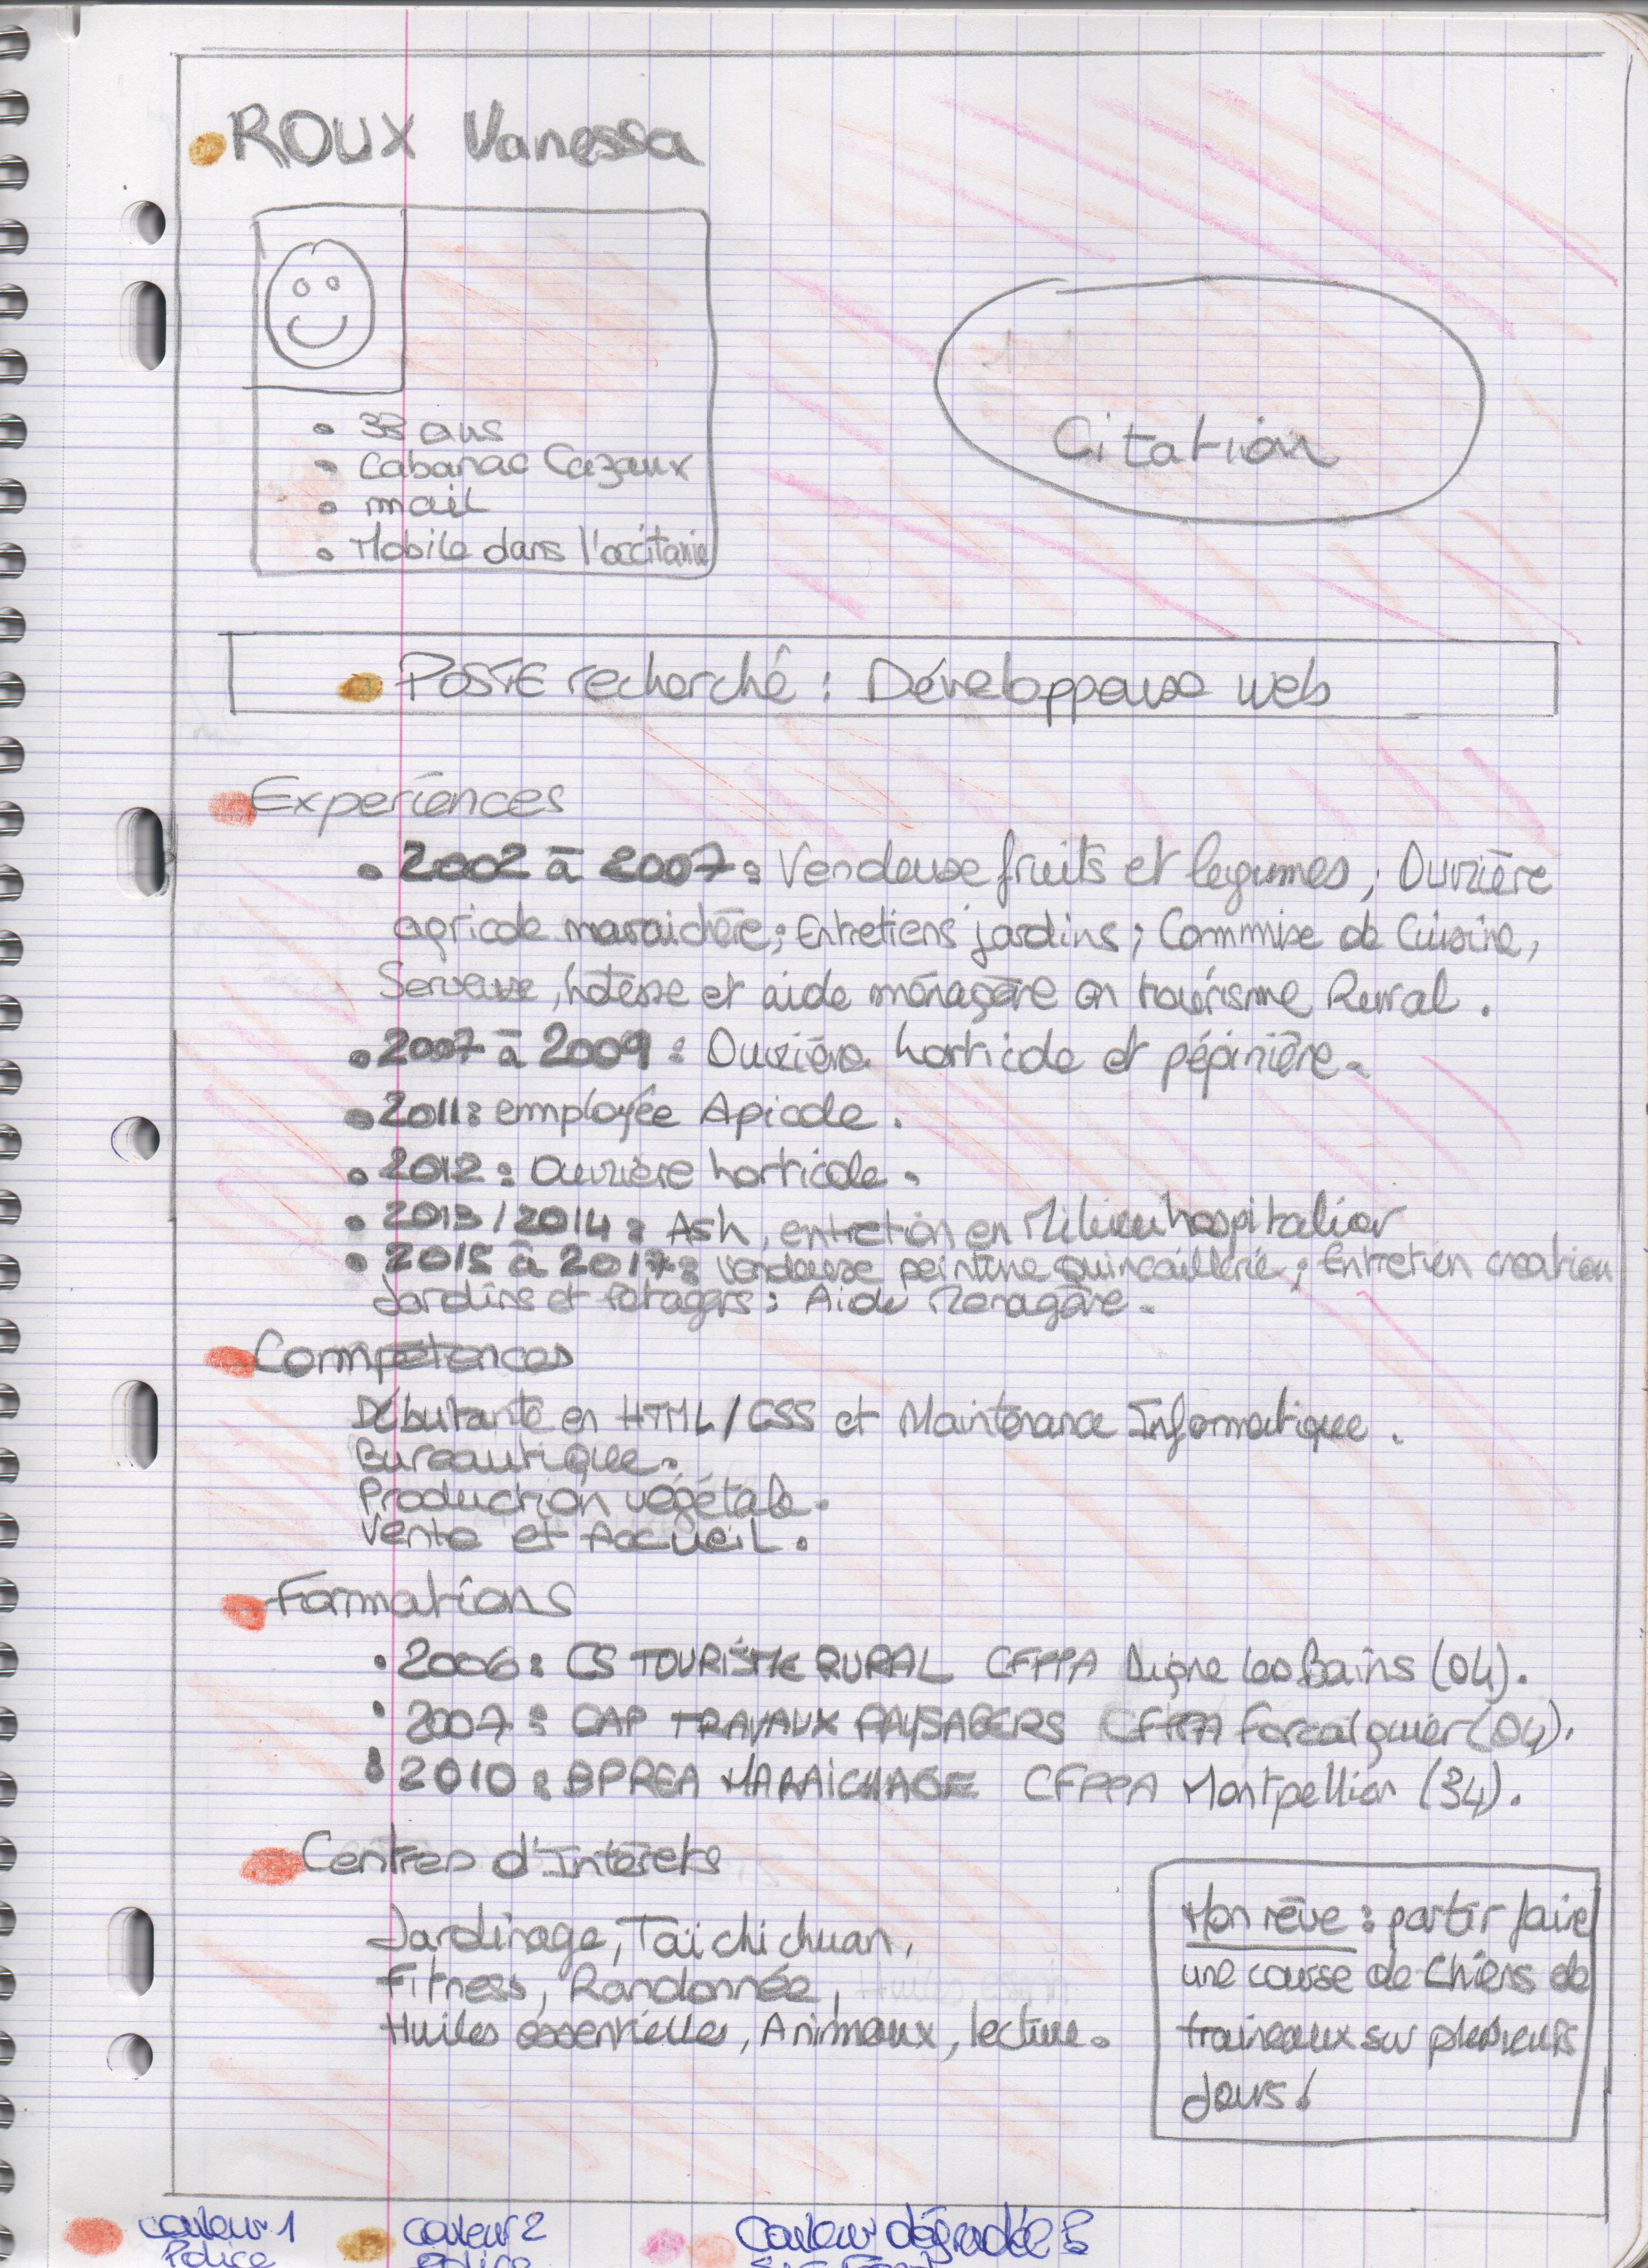 ROUX Vanessa
• 33 ans
• Cabanac Cazaux
• mail
• Mobile dans l'occitanie
Citation
POSTE recherché : Développeuse web
Expériences
• 2002 à 2007 : Vendeuse fruits et legumes ; Ouvrière
agricole maraichère ; Entretiens jardins ; Commise de Cuisine,
Serveuse, hôtesse et aide ménagère en tourisme Rural.
• 2007 à 2009 : Ouvrière horticole et pépinière.
• 2011 : employée Apicole.
• 2012 : Ouvrière horticole.
• 2013 / 2014 : Ash, entretien en Milieu hospitalier
• 2015 à 2017 : vendeuse peinture quincaillerie ; Entretien creation
Jardins et potagers ; Aide Menagère.
Compétences
Débutante en HTML/CSS et Maintenance Informatique.
Bureautique.
Production végétale.
Vente et Accueil.
Formations
• 2006 : CS TOURISME RURAL CFPPA Digne les Bains (04).
• 2007 : CAP TRAVAUX PAYSAGERS CFPPA Forcalquier (04).
• 2010 : BPREA MARAICHAGE CFPPA Montpellier (34).
Centres d'Intérets
Jardinage, Taïchichuan,
Fitness, Randonnée,
Huiles essentielles, Animaux, lecture.
Mon rêve : partir faire
une course de Chiens de
traineaux sur plusieurs
Jours !
couleur 1
Police
couleur 2
Police
Couleur dégradée